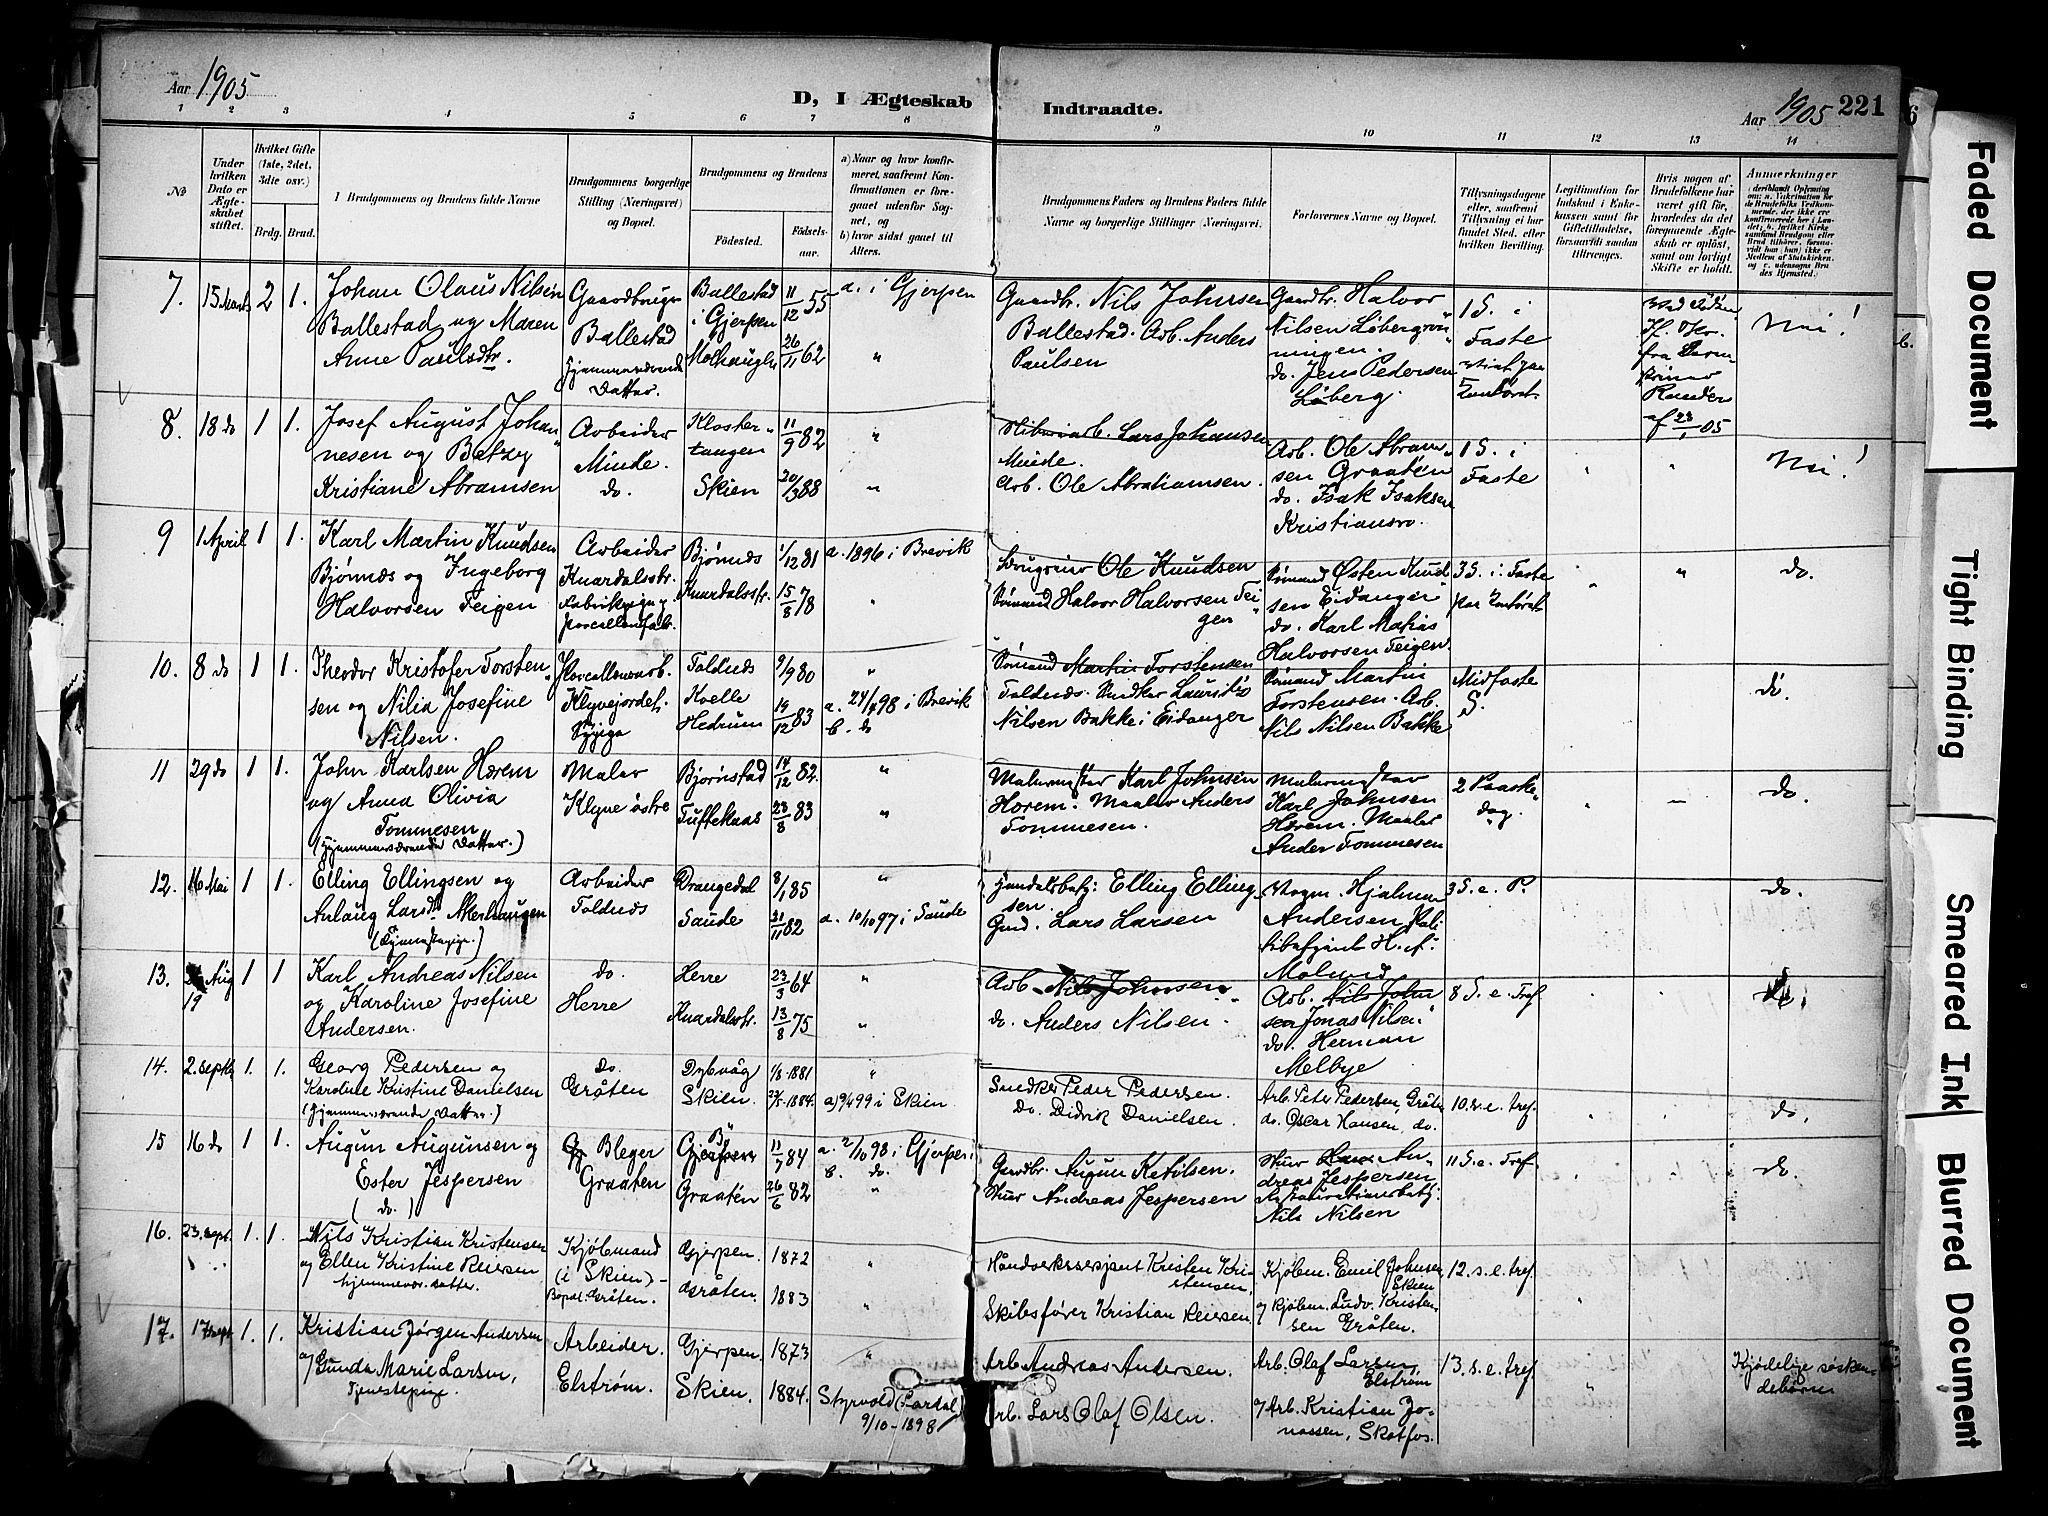 Aar 1905
D, I Ægteskab
Indtraadte.
Aar 1905 221
1 2 3 4 5 6 7 8 9 10 11 12 13 14
No
Under hvilken Dato er Ægteskabet stiftet.
Hvilket Gifte (1ste, 2det, 3die osv.)
Brdg. Brud.
Brudgommens og Brudens fulde Navne
Brudgommens borgerlige Stilling (Næringsvei) og Bopæl.
Brudgommens og Brudens
Fødested. Fødselsaar.
a) Naar og hvor konfirmeret, saafremt Konfirmationen er foregaaet udenfor Sognet, og
b) hvor sidst gaaet til Alters.
Brudgommens Faders og Brudens Faders fulde Navne og borgerlige Stillinger (Næringsvei.
Forlovernes Navne og Bopæl.
Tillysningsdagene eller, saafremt Tillysning ei har fundet Sted, efter hvilken Bevilling.
Legitimation for Indskud i Enkekassen samt for Giftetilladelse, forsaavidt saadan tiltrænges.
Hvis nogen af Brudefolkene har været gift før, hvorledes da det foregaaende Ægteskab er opløst, samt om lovligt Skifte er holdt.
Anmerkninger
7. 15 Marts 2 1.
Johan Olaus Nilsen
Ballestad og Maren
Anne Paulsdtr.
Gaardbruger
Ballestad
Hjemmeværende
Datter.
Ballestad
i Gjerpen
11/12 55
26/11 62
a. i Gjerpen
"
Gaardbr. Nils Johnsen
Ballestad. Arb. Anders
Paulsen
Gaardbr. Halvor
Nilsen Løbergrøn
ningen.
do. Jens Pedersen
Løberg.
1 S. i
Faste
Nei!
8. 18 do 1 1.
Josef August Johan
nesen og Betzy
Kristiane Abramsen
Arbeider
Minde.
do.
Kloster
tangen
Skien
11/9 82
20/3 88
"
"
Lars Johansen
Minde.
Arb. Ole Abrahamsen.
Arb. Ole Abram
sen Graatén
do. Isak Isaksen
Kristiansro.
1 S. i
Faste
Nei!
9 1 April 1 1.
Karl Martin Knudsen
Bjønnes og Ingeborg
Halvorsen Teigen
Arbeider
Knardalsstr.
Bjønnes
Knardalsstr.
1/12 81
15/8 78
a. 1896 i Brevik
"
Ole Knudsen
Sømand Halvor Halvorsen Tei
gen
Sømand Østen Knud
sen Eidanger
do. Karl Matias
Halvorsen Teigen
3 S. i Faste
do.
10. 8 do 1 1.
Theodor Kristofer Torsten
sen og Nilia Josefine
Nilsen.
Porcellænsarb.
Klyvejordet.
Toldnes
Kvelle
Hedrum
9/9 80
19/12 83
"
a. 24/4 98 i Brevik
b. do
Sømand Martin Torstensen
Toldnes. Snedker Lauritz
Nilsen Bakke i Eidanger
Sømand Martin
Torstensen. Arb.
Nils Nilsen Bakke
Midfaste
S.
do.
11 29 do 1 1.
John Karlsen Hærem
og Anna Olivia
Tommesen
(Hjemmeværende Datter.)
Maler
Klyve østre
Bjørnstad
Tuftekaas
14/12 82
23/8 83
"
"
Malermester Karl Johnsen
Hærem. Maaler Anders
Tommesen.
Malermester
Karl Johnsen
Hærem. Maaler
Anders Tommesen
2 Paaske
dag.
do.
12. 16 Mai 1 1.
Elling Ellingsen og
Anlaug Larsd. Akerhaugen
(Tjenestepige.)
Arbeider
Toldnes
Drangedal
Saude
8/1 85
21/11 82
"
a. 10/10 97 i Saude
Handelsbetj: Elling Elling
sen.
Gmd. Lars Larsen
Vogm. Hjalmar
Andersen Poli
tibetjent H. A.
Molund
3 S. e. P.
do.
13. Aug 19 1 1
Karl Andreas Nilsen
og Karoline Josefine
Andersen.
do.
Herre
Herre
Knardalsstr.
23/3 64
13/8 75
"
"
Arb. Nils Johnsen
do. Anders Nilsen
Arb. Nils John
sen Jonas Nilsen
do. Herman
Melbye
8 S. e. Tref
do.
14. 2. septbr 1. 1.
Georg Pedersen og
Karoline Kristine Danielsen
(Hjemmeværende Datter.)
do.
Gråten
Dybvåg
Skien.
1881
1884.
"
a) 9/4 99 i Skien
Snedker Peder Pedersen.
Do. Didrik Danielsen.
Arb. Peter Pedersen, Gråten
do. Oscar Hansen, do.
10. s. e. tref.
do.
15 16 do 1 1.
Augun Augunsen og
Ester Jespersen
(do.)
Bleger
Graaten
Bø
Gjerpen
Graatén
11/7 84
26/6 82
a. 2/10 98 i Gjerpen
b. do.
"
Gaardbr. Augun Ketilsen.
Stuer Andreas Jespersen
Stuer Hans An
dreas Jespersen
Restaurationsbetj:
Nils Nilsen
11 S. e. Tref
do.
16. 23. sept. 1. 1.
Nils Kristian Kristensen
og Ellen Kristine Reiersen
hjemmevær. datter.
Kjøbmand
(i Skien) -
Bopæl: Gråten.
Gjerpen.
Gråten.
1872
1883
"
"
Håndverkssersjant Kristen Kri
stensen,
Skibsfører Kristian Reiersen
Kjøbm. Emil Johnsen
Skien
og Kjøbm. Ludv. Kristen
sen Gråten.
12. s. e. tref.
17. 17 sept 1. 1.
Kristian Jørgen Andersen
og Gunda Marie Larsen,
Tjenestepige.
Arbeider.
Elstrøm.
Gjerpen.
Skien.
1873
1884.
"
Styrvold (Lardal)
9/10 - 1898
Arb. Andreas Andersen.
Arb. Lars Olaf Olsen.
Arb. Olaf Larsen
Elstrøm
og Arb. Kristian Jo-
nassen, Skotfos.
13. s. e. tref.
Kjødelige søsken-
debørn
Faded Document
Tight Binding
Smeared Ink
Blurred Document